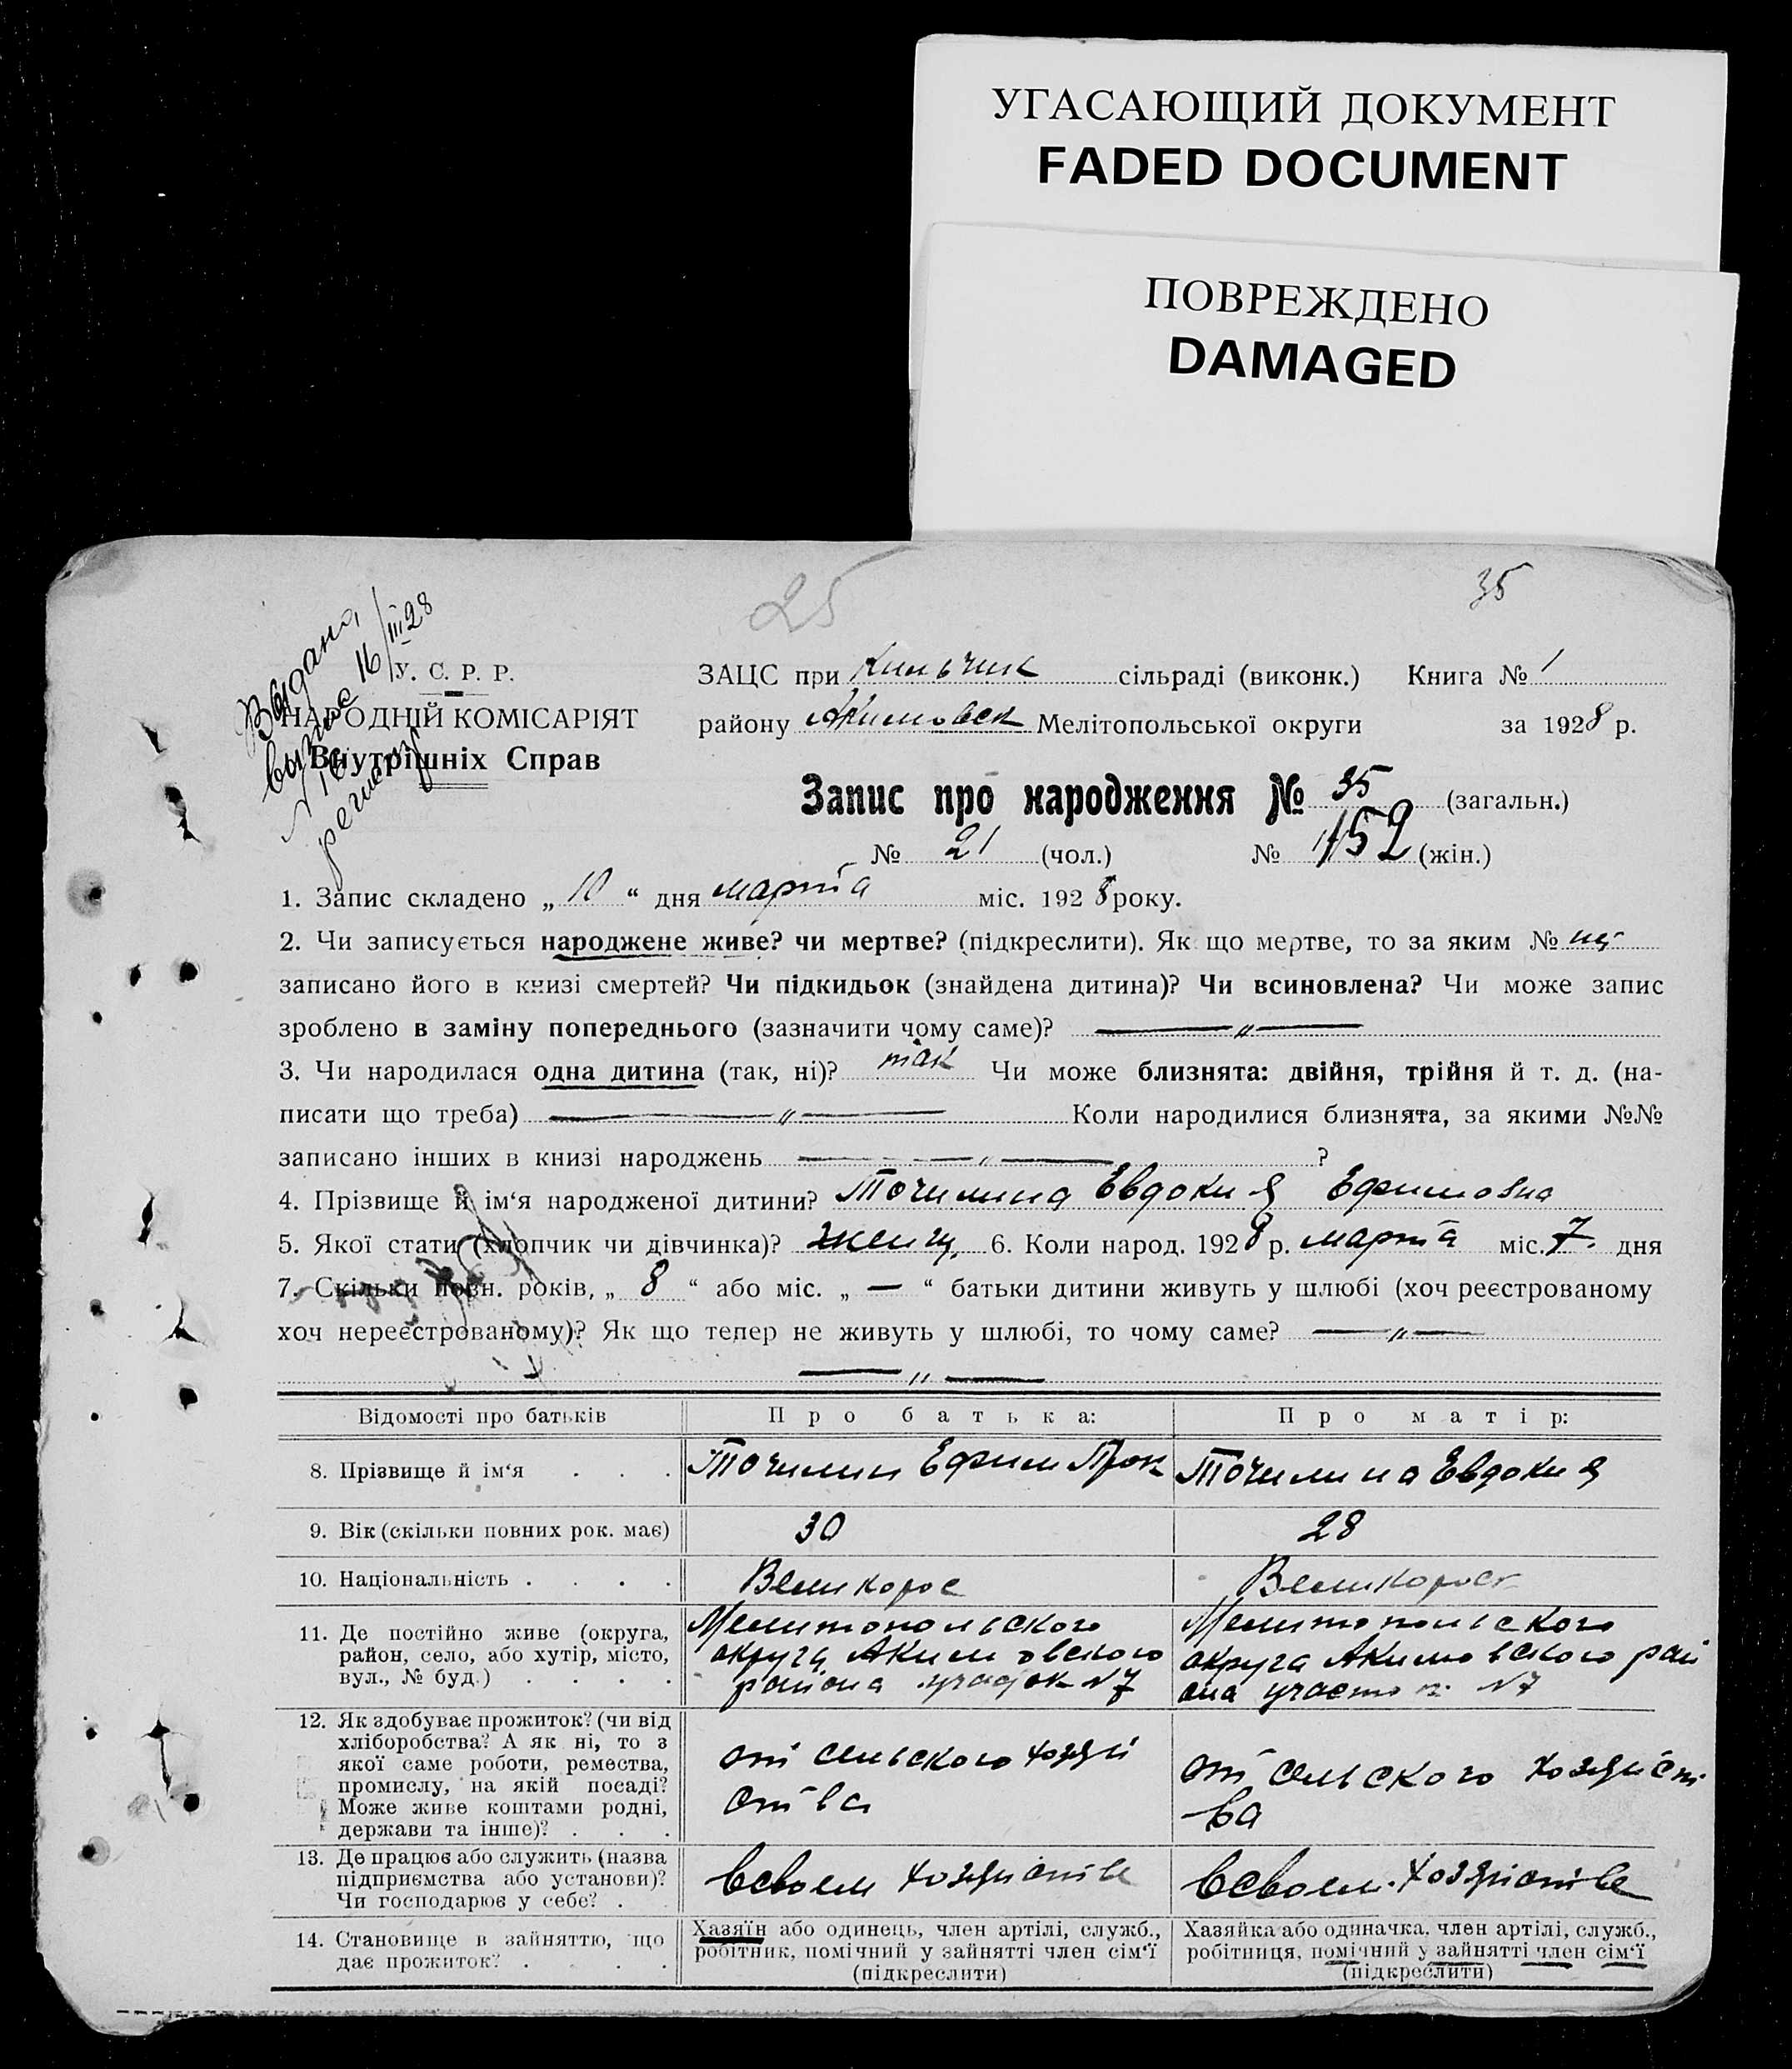 УГАСАЮЩИЙ ДОКУМЕНТ
FADED DOCUMENT
ПОВРЕЖДЕНО
DAMAGED
25
35
Выдана
выпис 16/III 28
У. С. Р. Р.
НАРОДНІЙ КОМІСАРІЯТ
Внутрішніх Справ
ЗАЦС при сільраді (виконк.) Книга № 1
району Акимовск Мелітопольської округи за 1928 р.
Запис про народження № 35 (загальн.)
№ 21 (чол.) № 152 (жін.)
1. Запис складено „ 10 “ дня марта міс. 1928 року.
2. Чи записується народжене живе? чи мертве? (підкреслити). Як що мертве, то за яким №
записано його в книзі смертей? Чи підкидьок (знайдена дитина)? Чи всиновлена? Чи може запис
зроблено в заміну попереднього (зазначити чому саме)? — „ —
3. Чи народилася одна дитина (так, ні)? так Чи може близнята: двійня, трійня й т. д. (на-
писати що треба) — „ — Коли народилися близнята, за якими №№
записано інших в книзі народжень — „ — ?
4. Прізвище й ім‘я народженої дитини? Точилина Евдокия Ефимовна
5. Якої стати (хлопчик чи дівчинка)? женщ. 6. Коли народ. 1928 р. марта міс. 7 дня
7. Скільки повн. років, „ 8 “ або міс. „ — “ батьки дитини живуть у шлюбі (хоч реєстрованому
хоч нереєстрованому)? Як що тепер не живуть у шлюбі, то чому саме? — „ —
— „ —
Відомості про батьків Про батька: Про матір:
8. Прізвище й ім‘я . . . Точилин Ефим Прок Точилина Евдокия
9. Вік (скільки повних рок. має) 30 28
10. Національність . . . . Великорос Великорос
11. Де постійно живе (округа,
район, село, або хутір, місто,
вул., № буд.) . . . .
Мелитопольского
округа Акимовского
района участок N7
Мелитопольского
округа Акимовского рай
она участок N7
12. Як здобуває прожиток? (чи від
хліборобства? А як ні, то з
якої саме роботи, ремества,
промислу, на якій посаді?
Може живе коштами родні,
держави та інше)? . . .
от сельского хозяй
ства
от сельского хозяйст
ва
13. Де працює або служить (назва
підприємства або установи)?
Чи господарює у себе? .
всвоем хозяйстве
всвоем хозяйстве
14. Становище в зайняттю, що
дає прожиток? . . . .
Хазяїн або одинець, член артілі, служб.,
робітник, помічний у зайнятті член сім‘ї
(підкреслити)
Хазяйка або одиначка, член артілі, служб.,
робітниця, помічний у зайнятті член сім‘ї
(підкреслити)